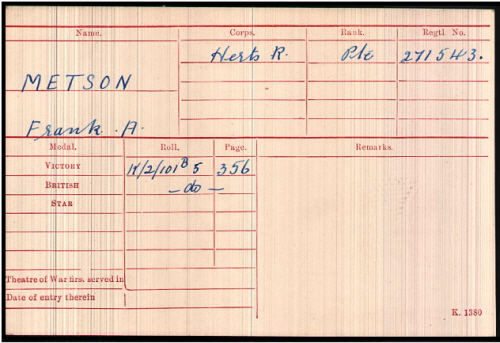 Name. Corps. Rank. Regtl. No.
Herts R. Pte 271543.
METSON
Frank. A.
Medal. Roll. Page. Remarks.
VICTORY K/2/101 B 5 356
BRITISH - do -
STAR
Theatre of War first served in
Date of entry therein
K. 1380